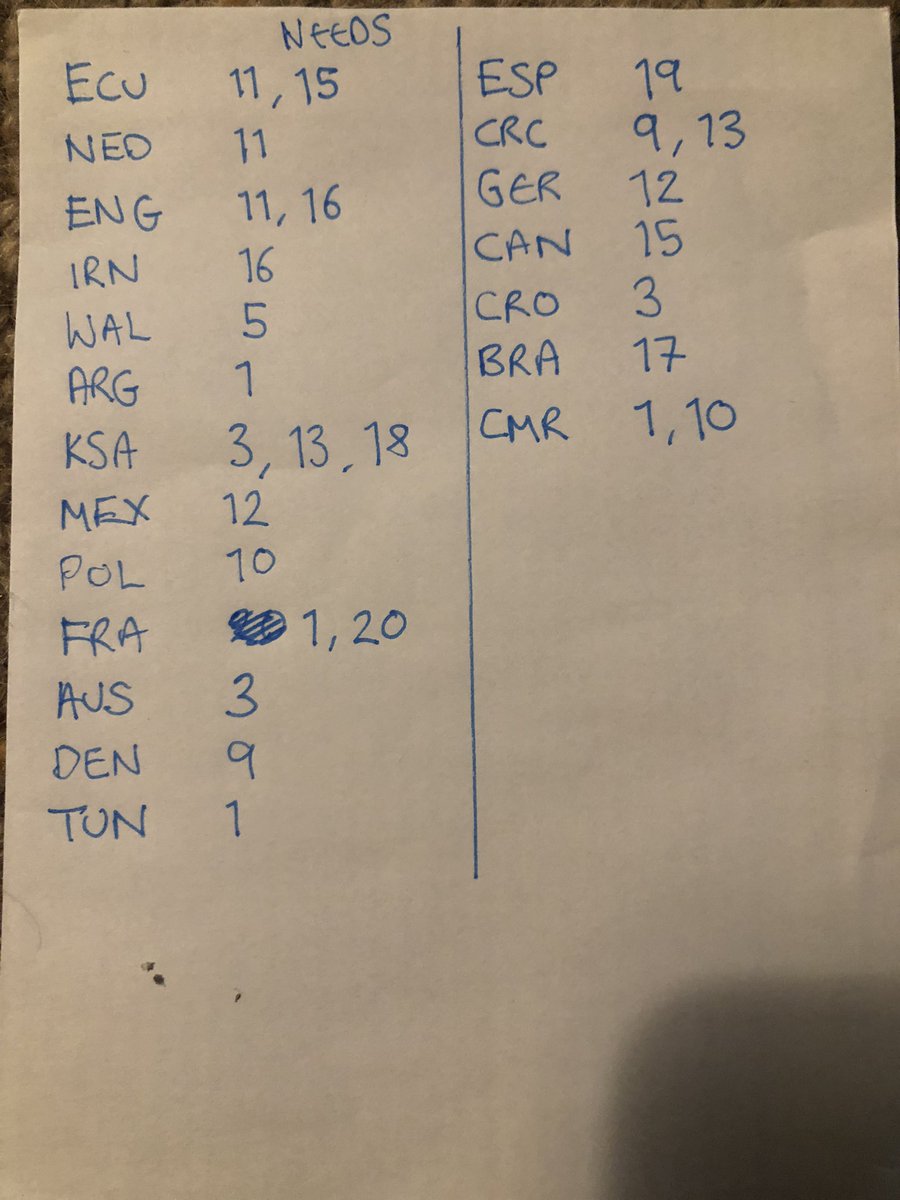 NEEDS
ECU 11, 15
NED 11
ENG 11, 16
IRN 16
WAL 5
ARG 1
KSA 3, 13, 18
MEX 12
POL 10
FRA 1, 20
AUS 3
DEN 9
TUN 1
ESP 19
CRC 9, 13
GER 12
CAN 15
CRO 3
BRA 17
CMR 1, 10